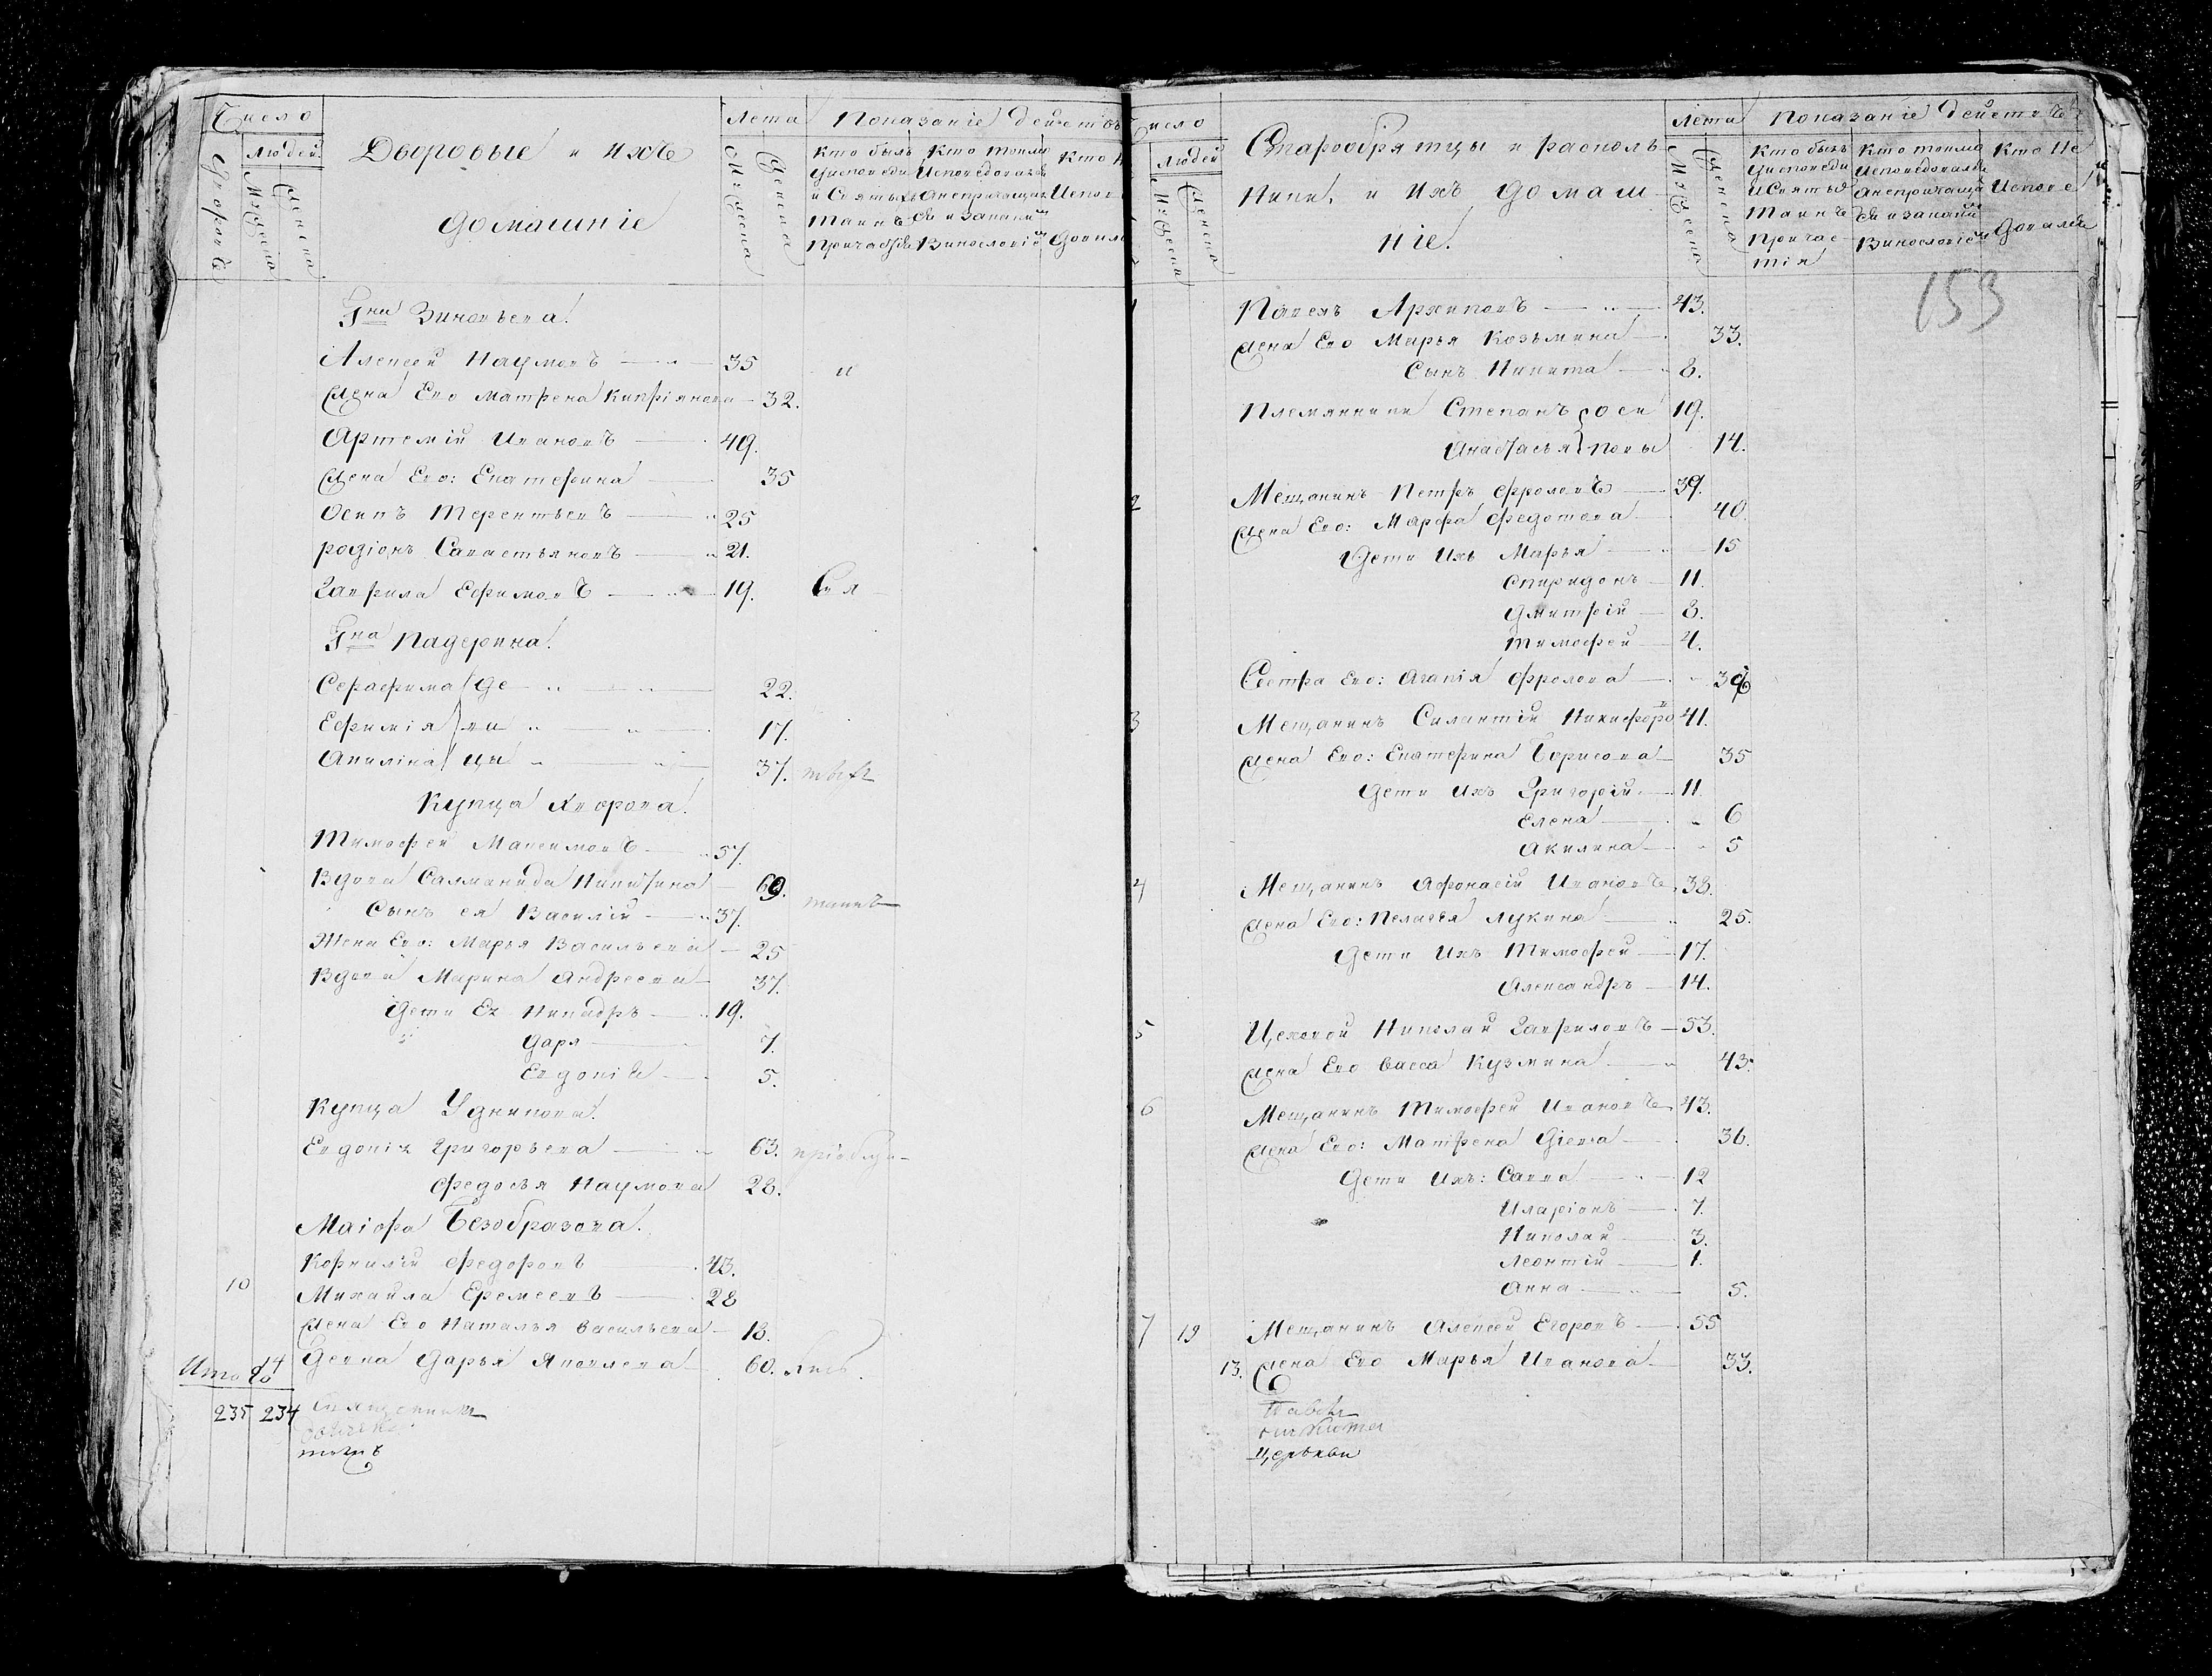 Число
Людей
Дворовъ
Мужеска
Женска
Дворовые и ихъ
домашніе
Лета
Мужеска
Женска
Показаніе действъ
Кто былъ
у исповеди
и Святыхъ
Таинъ
Причастія
Кто токмо
Исповедовался
а непричащал
ся и закаким
Винословіемъ
Гна Зиновьева.
Алексей Наумовъ 35 и
Жена Его Матрена Кипріянова 32.
Артемій Ивановъ 49.
Жена Его: Екатерина 35
Осипъ Терентьевъ 25
родіонъ Савастьяновъ 21.
Гаврила Ефимовъ 19. Свя
Гна Падерина.
Серафима де 22.
Ефимія ви 17.
Акилина цы 37. тыхъ
Купца Хворова.
Тимофей Максимовъ 57.
Вдова Саламанида Никитина 69.
таинъ
Сынъ ея Василій 37.
Жена Его: Марья Васильева 25
Вдова Марина Андреева 37.
Дети Ея Никандръ 19.
Даря 7.
Евдокія 5.
Купца Удникова.
Евдокія Григорьева 63. пріобщи
Федосья Наумова 28.
Маіора Безобразова.
Корнилій Федоровъ 43.
10 Михайла Еремеевъ 28
Жена Его Наталья Васильева 18.
14 Девка Дарья Яковлева 60. лись.
Итого
235 234 Священникъ
тотъ
Число
Людей
Мужеска
Женска
Старообрятцы и расколь
ники, и Ихъ домаш
ніе.
Лета
Мужеска
Женска
Показаніе действъ
Кто былъ
у исповеди
и Святыхъ
Таинъ
Причас
тія
Кто токмо
Исповедовался
а непричащал
ся и закаким
Винословіемъ
Кто Не
Испове
довался
153
1 Павелъ Архиповъ 43.
Жена Его Марья Козьмина 33.
Сынъ Никита 8.
Племянники Степанъ оси 19.
Анастасья повы 14.
2 Мещанинъ Петръ Фроловъ 39.
Жена Его: Марфа Федотова 40.
Дети Ихъ Марья 15
Спиридонъ 11.
Дмитрій 8.
Тимофей 4.
Сестра Его: Агапія Фролова
3 Мещанинъ Силантій Никифоро 41.
Жена Его: Екатерина Борисова 35
Дети Ихъ Григорій 11
Елена 6
Акилина 5
4 Мещанинъ Афонасій Ивановъ 38.
Жена Его: Пелагея Лукина 25.
Дети Ихъ Тимофей 17.
Александръ 14.
5 Цеховой Николай Гавриловъ 53.
Жена Его Васса Кузмина 43.
6 Мещанинъ Тимофей Ивановъ 43.
Жена Его: Матрена Діева 36.
Дети Ихъ: Савва 12
Иларіонъ 7.
Николай 3.
Леонтій 1.
Анна 5.
7 19 Мещанинъ Алексей Егоровъ 55
13. Жена Его Марья Иванова 33.
церькви